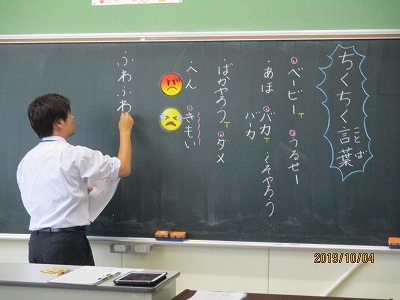 ちくちく言葉
ことば
・ベービー
・うるせー
・あほ
バカ
バーカ
くそやろう
・ばかやろう
・ダメ
・へん
・きもい
ふわふわ
2019/10/04